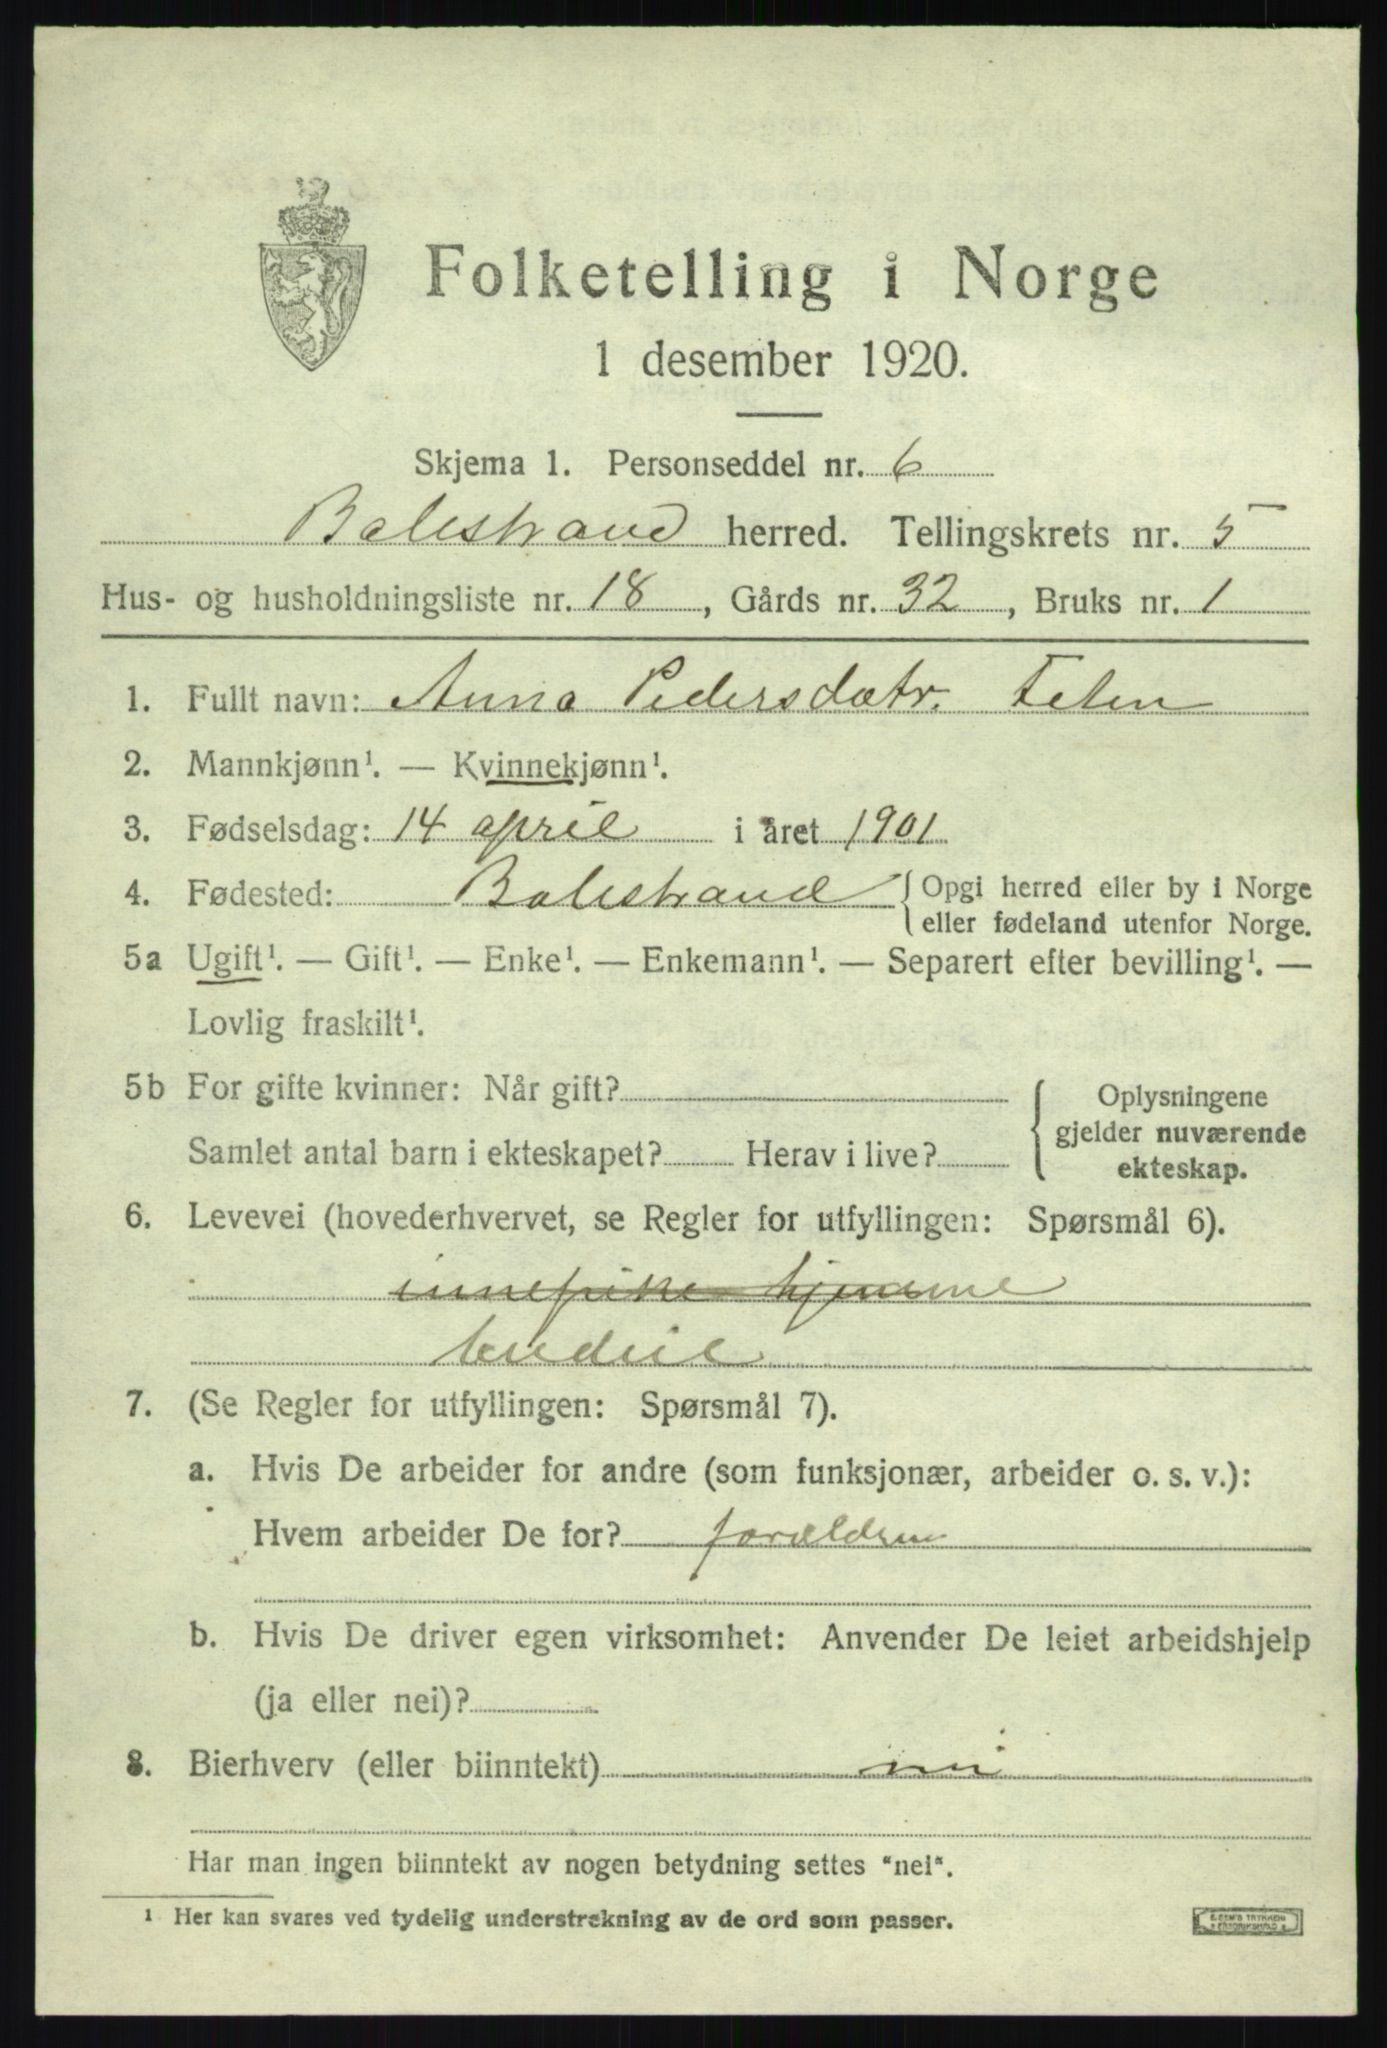 Folketelling i Norge
1 desember 1920.
Skjema 1. Personseddel nr. 6
Balestrand herred. Tellingskrets nr. 5
Hus- og husholdningsliste nr. 18, Gårds nr. 32, Bruks nr. 1
1. Fullt navn: Anna Pedersdatr. Feten
2. Mannkjønn¹. — Kvinnekjønn¹.
3. Fødselsdag: 14 april i året 1901
4. Fødested: Balestrand { Opgi herred eller by i Norge
eller fødeland utenfor Norge.
5a Ugift¹. — Gift¹. — Enke¹. — Enkemann¹. — Separert efter bevilling¹. —
Lovlig fraskilt¹.
5b For gifte kvinner: Når gift?
Samlet antal barn i ekteskapet? Herav i live?
Oplysningene
gjelder nuværende
ekteskap.
6. Levevei (hovederhvervet, se Regler for utfyllingen: Spørsmål 6).
hjemme
7. (Se Regler for utfyllingen: Spørsmål 7).
a. Hvis De arbeider for andre (som funksjonær, arbeider o. s. v.):
Hvem arbeider De for? forældrene
b. Hvis De driver egen virksomhet: Anvender De leiet arbeidshjelp
(ja eller nei)?
8. Bierhverv (eller biinntekt) nei
Har man ingen biinntekt av nogen betydning settes "nei".
¹ Her kan svares ved tydelig understrekning av de ord som passer.